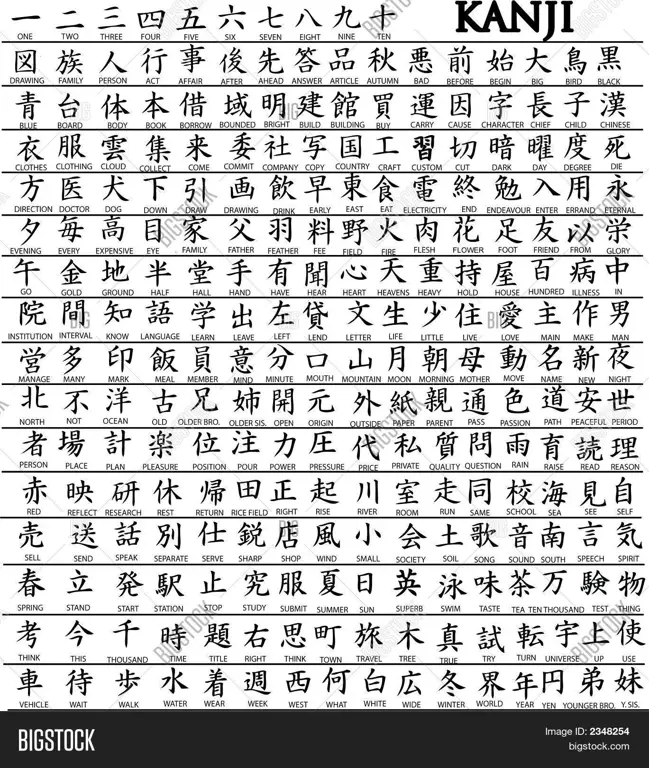 一 二 三 四 五 六 七 八 九 十 KANJI
ONE TWO THREE FOUR FIVE SIX SEVEN EIGHT NINE TEN
図 族 人 行 事 後 先 答 品 秋 悪 前 始 大 鳥 黒
DRAWING FAMILY PERSON ACT AFFAIR AFTER AHEAD ANSWER ARTICLE AUTUMN BAD BEFORE BEGIN BIG BIRD BLACK
青 台 体 本 借 域 明 建 館 買 運 因 字 長 子 漢
BLUE BOARD BODY BOOK BORROW BOUNDED BRIGHT BUILD BUILDING BUY CARRY CAUSE CHARACTER CHIEF CHILD CHINESE
衣 服 雲 集 来 委 社 写 国 工 習 切 暗 曜 度 死
CLOTHES CLOTHING CLOUD COLLECT COME COMMIT COMPANY COPY COUNTRY CRAFT CUSTOM CUT DARK DAY DEGREE DIE
方 医 犬 下 引 画 飲 早 東 食 電 終 勉 入 用 永
DIRECTION DOCTOR DOG DOWN DRAW DRAWING DRINK EARLY EAST EAT ELECTRICITY END ENDEAVOUR ENTER ERRAND ETERNAL
夕 毎 高 目 家 父 羽 料 野 火 肉 花 足 友 以 栄
EVENING EVERY EXPENSIVE EYE FAMILY FATHER FEATHER FEE FIELD FIRE FLESH FLOWER FOOT FRIEND FROM GLORY
午 金 地 半 堂 手 有 聞 心 天 重 持 屋 百 病 中
GO GOLD GROUND HALF HALL HAND HAVE HEAR HEART HEAVENS HEAVY HOLD HOUSE HUNDRED ILLNESS IN
院 間 知 語 学 出 左 貸 文 生 少 住 愛 主 作 男
INSTITUTION INTERVAL KNOW LANGUAGE LEARN LEAVE LEFT LEND LETTER LIFE LITTLE LIVE LOVE MAIN MAKE MAN
営 多 印 飯 員 意 分 口 山 月 朝 母 動 名 新 夜
MANAGE MANY MARK MEAL MEMBER MIND MINUTE MOUTH MOUNTAIN MOON MORNING MOTHER MOVE NAME NEW NIGHT
北 不 洋 古 兄 姉 開 元 外 紙 親 通 色 道 安 世
NORTH NOT OCEAN OLD OLDER BRO. OLDER SIS. OPEN ORIGIN OUTSIDE PAPER PARENT PASS PASSION PATH PEACEFUL PERIOD
者 場 計 楽 位 注 力 圧 代 私 質 問 雨 育 読 理
PERSON PLACE PLAN PLEASURE POSITION POUR POWER PRESSURE PRICE PRIVATE QUALITY QUESTION RAIN RAISE READ REASON
赤 映 研 休 帰 田 正 起 川 室 走 同 校 海 見 自
RED REFLECT RESEARCH REST RETURN RICE FIELD RIGHT RISE RIVER ROOM RUN SAME SCHOOL SEA SEE SELF
売 送 話 別 仕 鋭 店 風 小 会 土 歌 音 南 言 気
SELL SEND SPEAK SEPARATE SERVE SHARP SHOP WIND SMALL SOCIETY SOIL SONG SOUND SOUTH SPEECH SPIRIT
春 立 発 駅 止 究 服 夏 日 英 泳 味 茶 万 験 物
SPRING STAND START STATION STOP STUDY SUBMIT SUMMER SUN SUPERB SWIM TASTE TEA TEN THOUSAND TEST THING
考 今 千 時 題 右 思 町 旅 木 真 試 転 宇 上 使
THINK THIS THOUSAND TIME TITLE RIGHT THINK TOWN TRAVEL TREE TRUE TRY TURN UNIVERSE UP USE
車 待 歩 水 着 週 西 何 白 広 冬 界 年 円 弟 妹
VEHICLE WAIT WALK WATER WEAR WEEK WEST WHAT WHITE WIDE WINTER WORLD YEAR YEN YOUNGER BRO. Y.SIS.
BIGSTOCK
Image ID: 2348254
bigstock.com